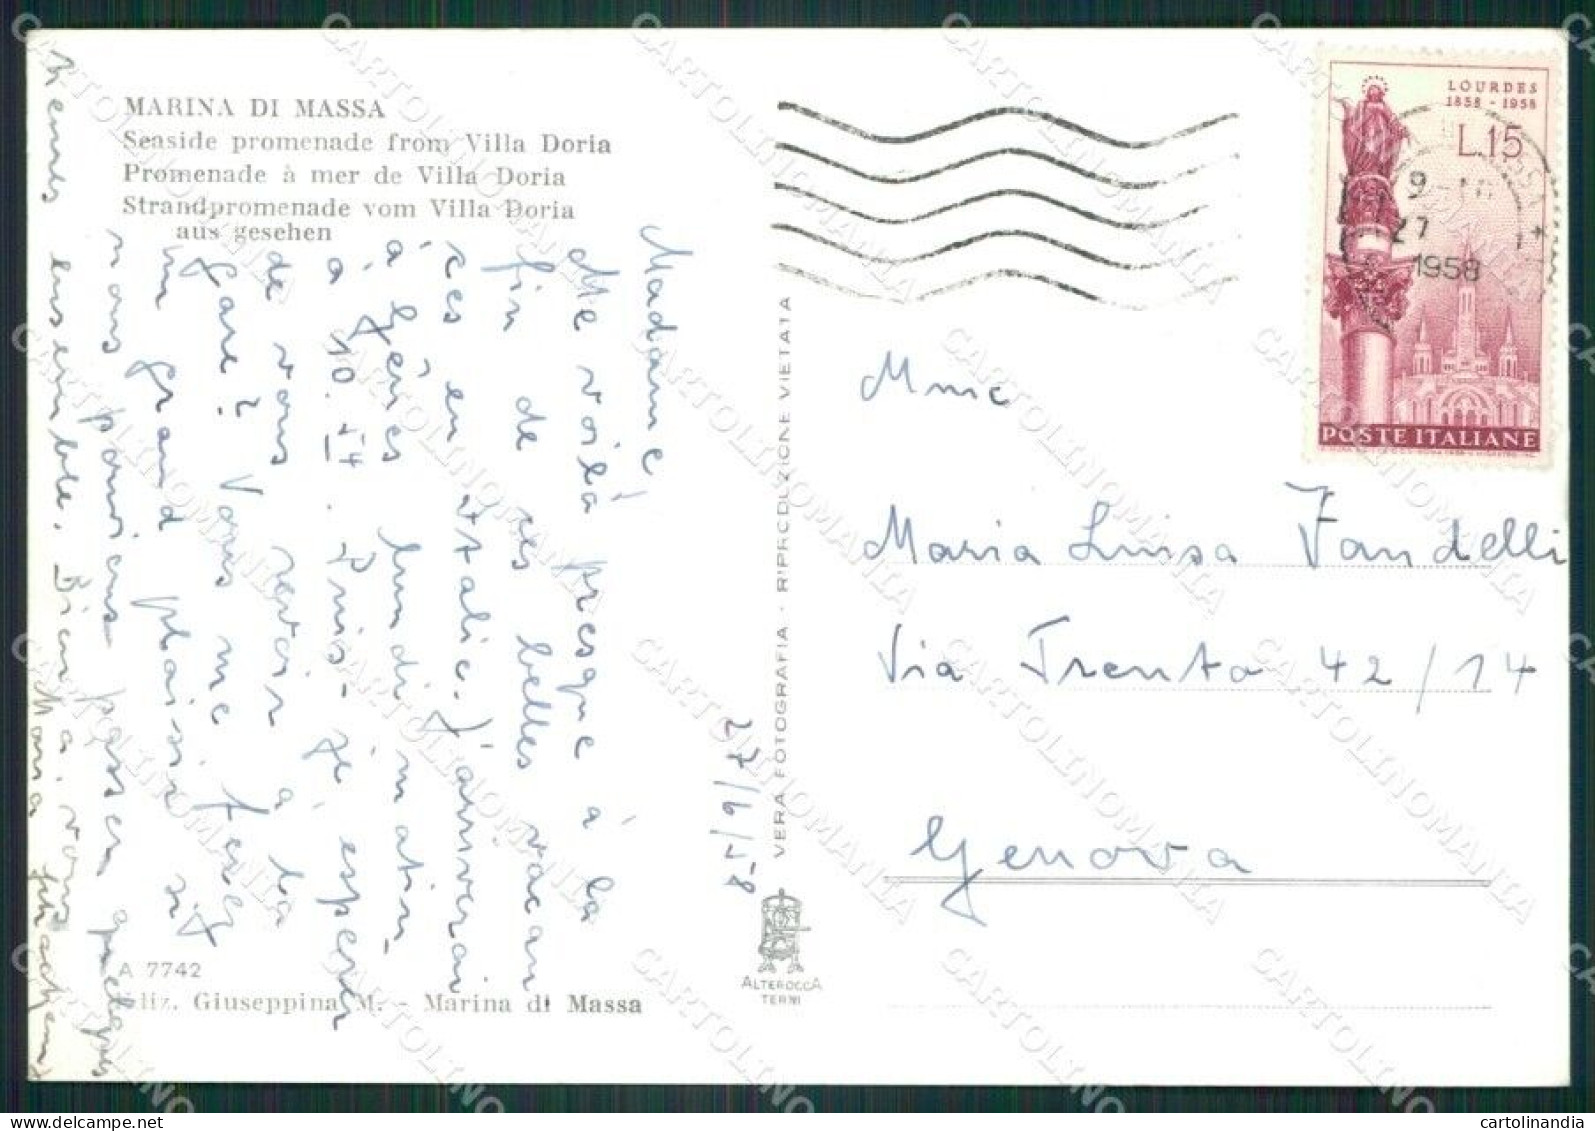 MARINA DI MASSA
Seaside promenade from Villa Doria
Promenade à mer de Villa Doria
Strandpromenade vom Villa Doria
aus gesehen
Madame,
Me voilà presque à la
fin de ces belles vacan
ces en Italie. J'arriverai
à Gênes lundi matin,
à 10.
Puis-je espérer
de vous revoir à la
gare? Vous me ferez
un grand plaisir si
nous pouvions passer quelques
heures ensemble.
vous
27/6/58
A 7742
Ediz. Giuseppina M. - Marina di Massa
VERA FOTOGRAFIA - RIPRODUZIONE VIETATA
ALTEROCCA
TERNI
LOURDES
1858 - 1958
L.15
POSTE ITALIANE
27
1958
Mme
Maria Luisa Fandelli
Via Trento 42/14
Genova
CARTOLINOMANIA
cartolinandia